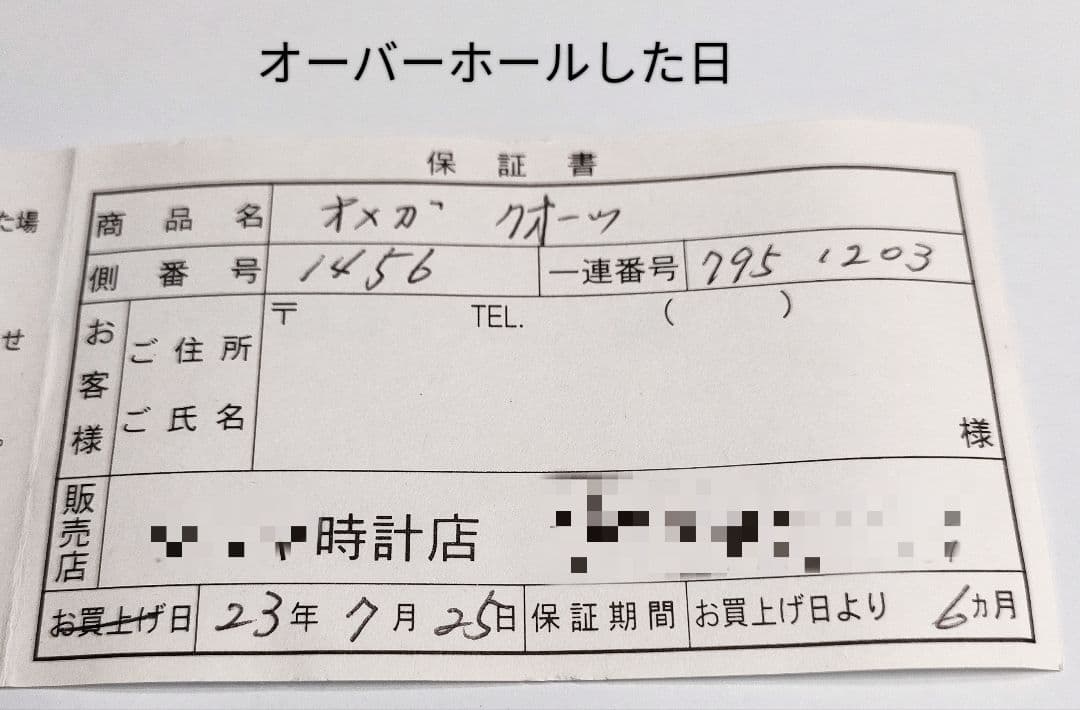 オーバーホールした日
保証書
た場
商品名 オメガ クオーツ
側番号 1456 一連番号 795 1203
せ
お客様 ご住所 〒 TEL. ( )
ご氏名 様
販売店 時計店
お買上げ日 23年 7月 25日 保証期間 お買上げ日より 6カ月